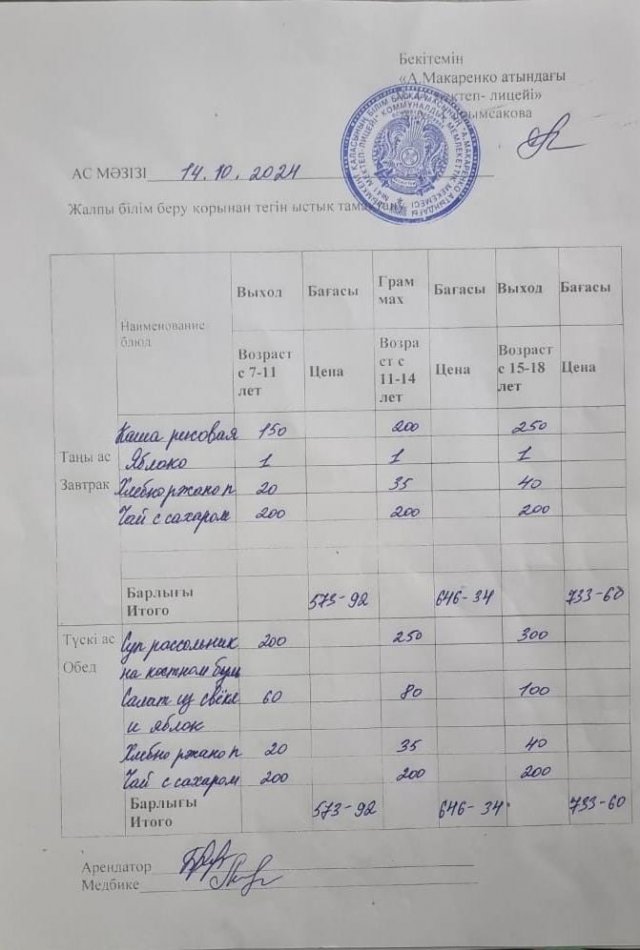 Бекітемін
«А.Макаренко атындағы
мектеп- лицейі»
АС МӘЗІЗІ 14.10.2024
Жалпы білім беру қорынан тегін ыстық
Наименование блюд
Выход Бағасы Грам мах Бағасы Выход Бағасы
Возраст с 7-11 лет Цена Возра ст с 11-14 лет Цена Возраст с 15-18 лет Цена
Таңы ас
Завтрак
Каша рисовая 150 200 250
Яблоко 1 1 1
Хлебно ржано п 20 35 40
Чай с сахаром 200 200 200
Барлығы
Итого 573-92 646-34 733-60
Түскі ас
Обед
Суп рассольник 200 250 300
на костном бул
Салат из свёкл 60 80 100
и яблок
Хлебно ржано п 20 35 40
Чай с сахаром 200 200 200
Барлығы
Итого 573-92 646-34 733-60
Арендатор
Медбике